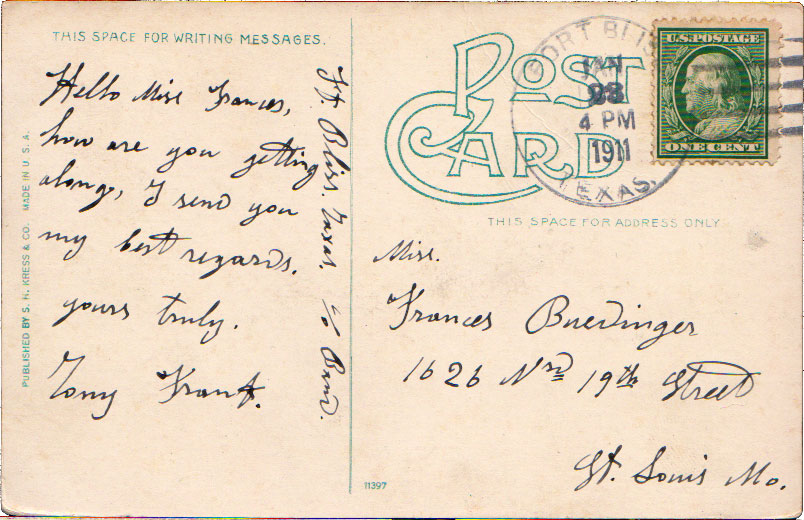 THIS SPACE FOR WRITING MESSAGES.
Hello Miss Frances,
how are you getting
along, I send you
my best regards.
yours truly.
Tony
Ft. Bliss. Texas. c/o Band.
PUBLISHED BY S. H. KRESS & CO. MADE IN U.S.A.
POST CARD
FORT BLISS
JAN
23
4 PM
1911
TEXAS.
U.S. POSTAGE
ONE CENT
THIS SPACE FOR ADDRESS ONLY
Miss.
Frances Buedinger
1626 Nrd 19th Street
St. Louis Mo.
11397